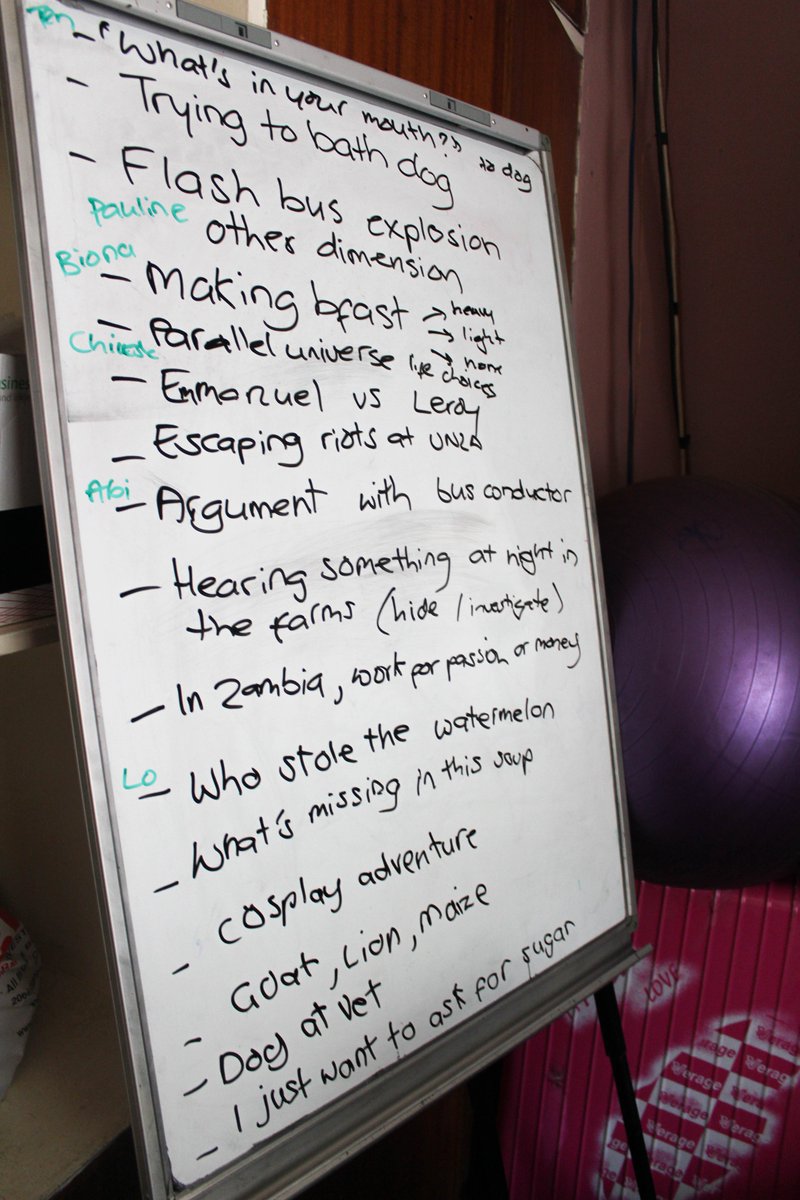 - "What's in your mouth?" to dog
- Trying to bath dog
- Flash bus explosion
Pauline
other dimension
Biona
- Making bfast → heavy
→ light
→ none
- Parallel universe life choices
- Emmanuel vs Leroy
- Escaping riots at UNZA
Abi
- Argument with bus conductor
- Hearing something at night in
the farms (hide / investigate)
- In Zambia, work for passion or money
Lo
- Who stole the watermelon
- What's missing in this soup
- Cosplay adventure
- Goat, Lion, Maize
- Dog at vet
- I just want to ask for sugar
LOVE
Verage
Verage
Verage
Verage